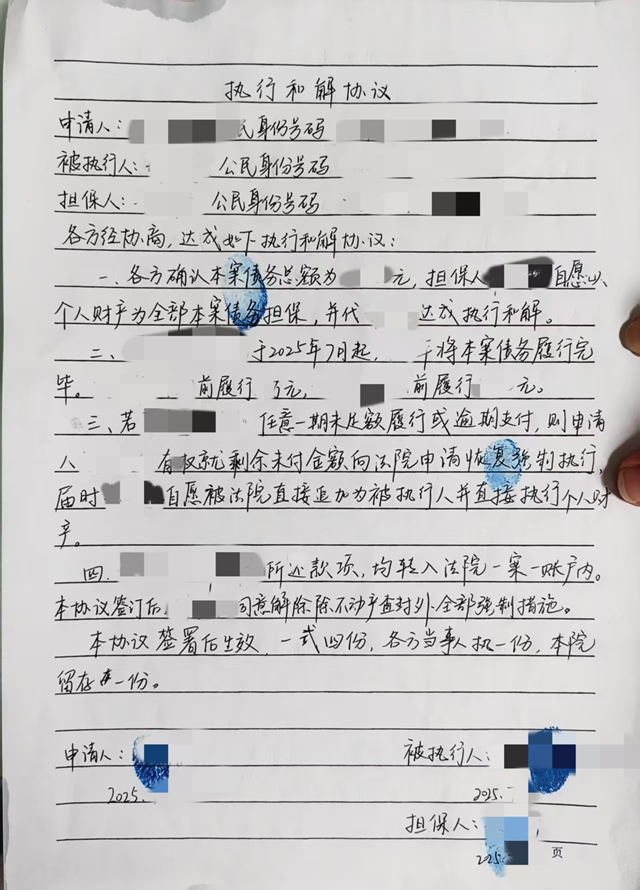 执行和解协议
申请人: 民身份号码
被执行人: 公民身份号码
担保人: 公民身份号码
各方经协商,达成如下执行和解协议:
一、各方确认本案债务总额为 元,担保人 自愿以
个人财产为全部本案债务担保,并代 达成执行和解。
二、 于2025年7月起, 将本案债务履行完
毕。 前履行 元, 前履行 元。
三、若 任意一期未足额履行或逾期支付,则申请
人 有权就剩余未付金额向法院申请恢复强制执行,
届时 自愿被法院直接追加为被执行人并直接执行个人财
产。
四、 所述款项,均转入法院一案一账户内。
本协议签订后, 同意解除除不动产查封外全部强制措施。
本协议签署后生效,一式四份,各方当事人执一份,本院
留存一份。
申请人: 被执行人:
2025. 2025.
担保人:
2025. 页